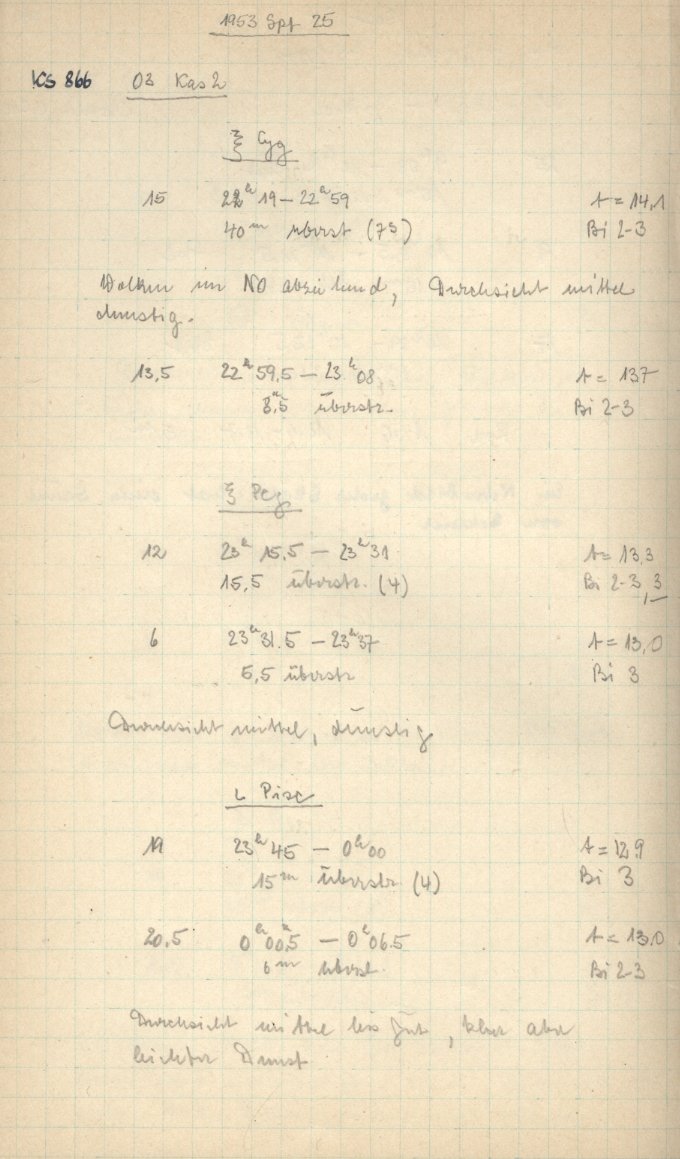 1953 Spt 25
KS 866 03 Kas 2
ξ Cyg
15 22h 19 – 22h 59 t = 14,1
40m überst (7s) Bi 2-3
Wolken im NO abziehend, Durchsicht mittel
dunstig.
13,5 22h 59,5 – 23h 08 t = 13,7
8,5 überstr. Bi 2-3
ξ Peg
12 23h 15,5 – 23h 31 t = 13,3
15,5 überstr. (4) Bi 2-3, 3
6 23h 31.5 – 23h 37 t = 13,0
5,5 überstr Bi 3
Durchsicht mittel, dunstig
ι Pisc
19 23h 45 – 0h 00 t = 12,9
15m überstr (4) Bi 3
20,5 0h 00,5 – 0h 06.5 t = 13,0
6m überst. Bi 2-3
Durchsicht mittel bis gut, klar aber
leichter Dunst